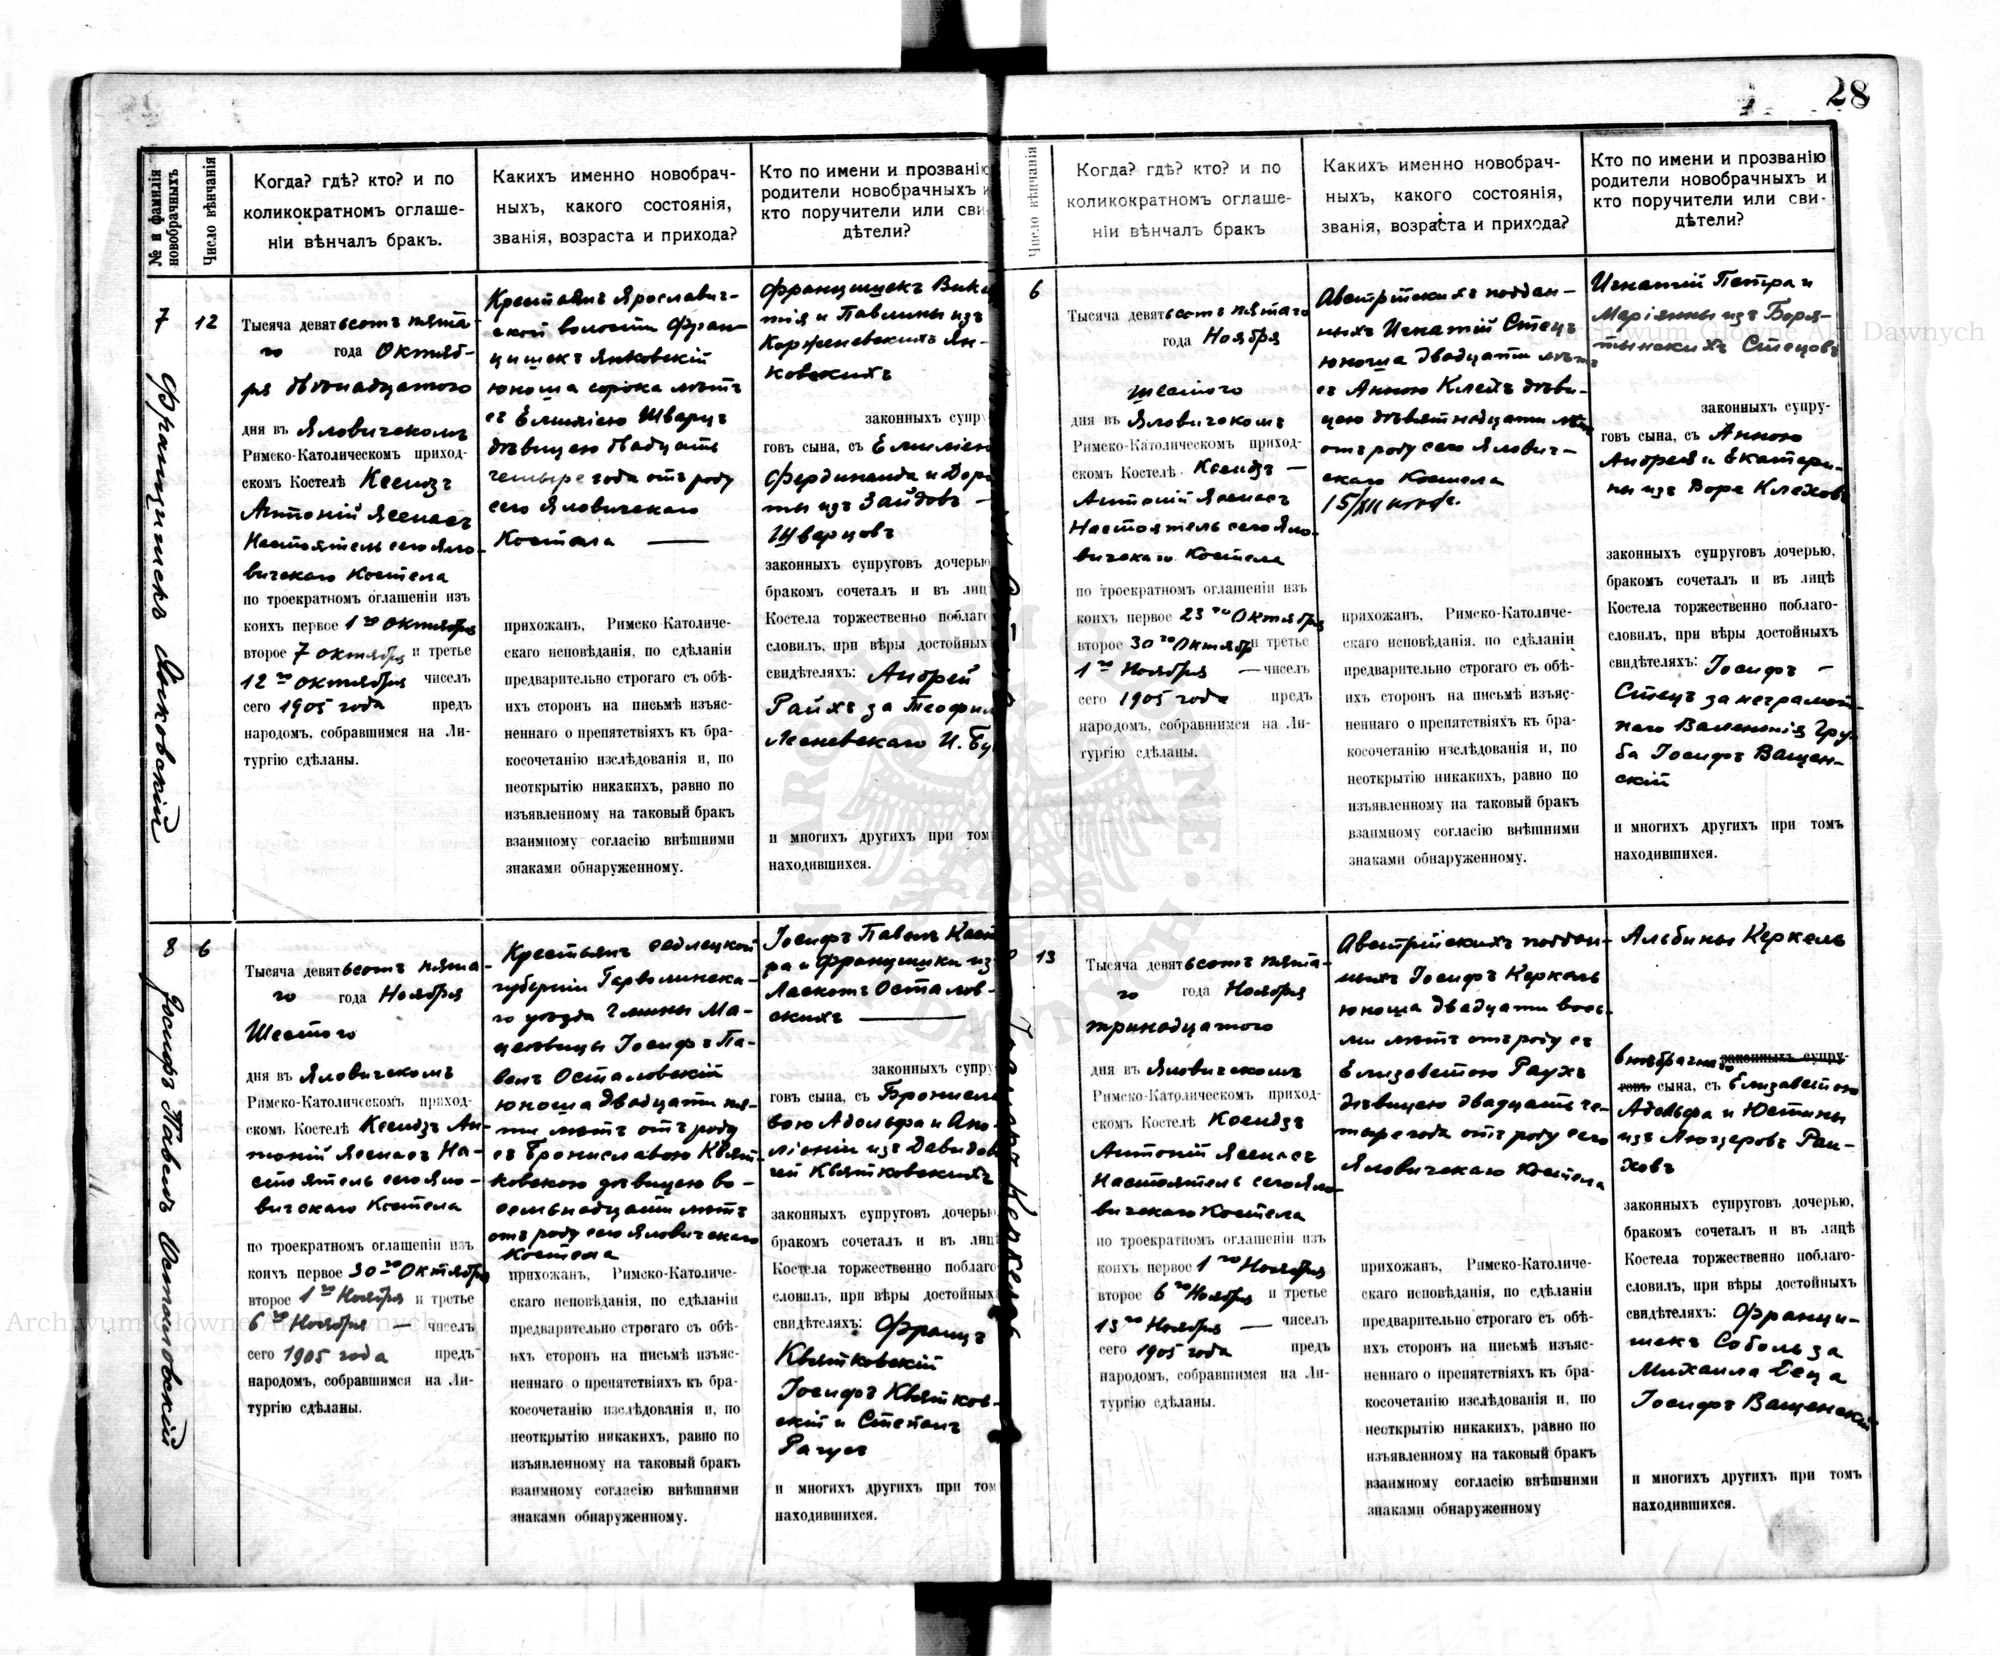 28
№ и фамилія
новобрачныхъ
Число вѣнчанія
Когда? гдѣ? кто? и по
коликократномъ оглаше-
ніи вѣнчалъ бракъ.
Какихъ именно новобрач-
ныхъ, какого состоянія,
званія, возраста и прихода?
Кто по имени и прозванію
родители новобрачныхъ и
кто поручители или сви-
дѣтели?
7
Францишекъ Янковскій
12
Тысяча девятьсотъ пята-
го года Октяб-
ря двѣнадцатого
дня въ Яловичскомъ
Римско-Католическомъ приход-
скомъ Костелѣ Ксендзъ
Антоній Ясенасъ
Настоятель сего Яло-
вичскаго Костела
по троекратномъ оглашеніи изъ
коихъ первое 1го Октября
второе 7 октября и третье
12го октября чиселъ
сего 1905 года предъ
народомъ, собравшимся на Ли-
тургію сдѣланы.
Крестьянъ Ярославич-
ской волости Фран-
цишекъ Янковскій
юноша сорока лѣтъ
съ Емилією Шварцъ
дѣвицею двадцать
четыре года отъ роду
сего Яловичскаго
Костела
прихожан, Римско-Католиче-
скаго исповѣданія, по сдѣланіи
предварительно строгаго съ обѣ-
ихъ сторонъ на письмѣ изъяс-
неннаго о препятствіяхъ къ бра-
косочетанію изслѣдованія и, по
неоткрытію никакихъ, равно по
изъявленному на таковый бракъ
взаимному согласію внѣшними
знаками обнаруженному.
Францишекъ Вике
тія и Павлины изъ
Корженевскихъ Ян-
ковскихъ
законныхъ супру
говъ сына, съ Емиліею
Фердинанда и Доро
ты изъ Зайдовъ
Шварцовъ
законныхъ супруговъ дочерью
бракомъ сочеталъ и въ лиц
Костела торжественно поблаго
словилъ, при вѣры достойныхъ
свидѣтеляхъ: Андрей
Райхъ за Теофил
Лесневскаго И. Бу
и многихъ другихъ при том
находившихся.
8
Іосифъ Павелъ Осталовскій
6
Тысяча девятьсотъ пята-
го года Ноября
Шестого
дня въ Яловичскомъ
Римско-Католическомъ приход-
скомъ Костелѣ Ксендзъ Ан-
тоній Ясенасъ На-
стоятель сего Яло-
вичскаго Костела
по троекратномъ оглашеніи изъ
коихъ первое 30го Октября
второе 1го Ноября и третье
6го Ноября чиселъ
сего 1905 года предъ
народомъ, собравшимся на Ли-
тургію сдѣланы.
Крестьянъ Седлецкой
губерніи Гарволинска-
го уѣзда Гмины Ма-
цеовицы Іосифъ Па-
велъ Осталовскій
юноша двадцати пя-
ти лѣтъ отъ роду
съ Брониславою Квят-
ковскою дѣвицею во-
семьнадцати лѣтъ
отъ роду сего Яловичскаго
Костела
прихожан, Римско-Католиче-
скаго исповѣданія, по сдѣланіи
предварительно строгаго съ обѣ-
ихъ сторонъ на письмѣ изъяс-
неннаго о препятствіяхъ къ бра-
косочетанію изслѣдованія и, по
неоткрытію никакихъ, равно по
изъявленному на таковый бракъ
взаимному согласію внѣшними
знаками обнаруженному.
Іосифъ Павелъ Каст
ра и Францишки из
Ласкотъ Осталов-
скихъ
законныхъ супру
говъ сына, съ Бронисла
вою Адольфа и Апо-
лоніи изъ Давидов
чей Квятковскихъ
законныхъ супруговъ дочерью
бракомъ сочеталъ и въ лицѣ
Костела торжественно поблаго
словилъ, при вѣры достойныхъ
свидѣтеляхъ: Францъ
Квятковскій
Іосифъ Квятков-
скій и Степанъ
Рагусъ
и многихъ другихъ при том
находившихся.
Число вѣнчанія
Когда? гдѣ? кто? и по
коликократномъ оглаше-
ніи вѣнчалъ бракъ
Какихъ именно новобрач-
ныхъ, какого состоянія,
званія, возраста и прихода?
Кто по имени и прозванію
родители новобрачныхъ и
кто поручители или сви-
дѣтели?
6
Тысяча девятьсотъ пятаго
года Ноября
шестого
дня въ Яловичскомъ
Римско-Католическомъ приход-
скомъ Костелѣ Ксендзъ
Антоній Ясенасъ
Настоятель сего Яло-
вичскаго Костела
по троекратномъ оглашеніи изъ
коихъ первое 23го Октября
второе 30го Октября и третье
1го Ноября чиселъ
сего 1905 года предъ
народомъ, собравшимся на Ли-
тургію сдѣланы.
Австрійскихъ поддан-
ныхъ Игнатій Стецъ
юноша двадцати лѣтъ
съ Анною Клехъ дѣви-
цею дѣвятнадцати лѣтъ
отъ роду сего Ялович-
скаго Костела
15/XII
прихожан, Римско-Католиче-
скаго исповѣданія, по сдѣланіи
предварительно строгаго съ обѣ-
ихъ сторонъ на письмѣ изъяс-
неннаго о препятствіяхъ къ бра-
косочетанію изслѣдованія и, по
неоткрытію никакихъ, равно по
изъявленному на таковый бракъ
взаимному согласію внѣшними
знаками обнаруженному.
Игнатій Петра и
Маріянны изъ Боря-
тынскихъ Стецовъ
законныхъ супру-
говъ сына, съ Анною
Андрея и Екатери-
ны изъ Воре Клеховъ
законныхъ супруговъ дочерью,
бракомъ сочеталъ и въ лицѣ
Костела торжественно поблаго-
словилъ, при вѣры достойныхъ
свидѣтеляхъ: Іосифъ
Стецъ за неграмот-
наго Валентія Гру-
ба Іосифъ Ващен-
скій
и многихъ другихъ при томъ
находившихся.
13
Керкель
Тысяча девятьсотъ пята-
го года Ноября
тринадцатого
дня въ Яловичскомъ
Римско-Католическомъ приход-
скомъ Костелѣ Ксендзъ
Антоній Ясенасъ
Настоятель сего Яло-
вичскаго Костела
по троекратномъ оглашеніи изъ
коихъ первое 1го Ноября
второе 6го Ноября и третье
13го Ноября чиселъ
сего 1905 года предъ
народомъ, собравшимся на Ли-
тургію сдѣланы.
Австрійскихъ поддан-
ныхъ Іосифъ Керкель
юноша двадцати вось-
ми лѣтъ отъ роду съ
Елизаветою Раухъ
дѣвицею двадцать че-
тыре года отъ роду сего
Яловичскаго Костела
прихожан, Римско-Католиче-
скаго исповѣданія, по сдѣланіи
предварительно строгаго съ обѣ-
ихъ сторонъ на письмѣ изъяс-
неннаго о препятствіяхъ къ бра-
косочетанію изслѣдованія и, по
неоткрытію никакихъ, равно по
изъявленному на таковый бракъ
взаимному согласію внѣшними
знаками обнаруженному
Альбины Керкель
внѣбрачнаго законныхъ супру-
говъ сына, съ Елизаветою
Адольфа и Юстины
изъ Люцеровъ Рау-
ховъ
законныхъ супруговъ дочерью,
бракомъ сочеталъ и въ лицѣ
Костела торжественно поблаго-
словилъ, при вѣры достойныхъ
свидѣтеляхъ: Францы-
шекъ Соболь за
Михаила Беца
Іосифъ Ващенскій
и многихъ другихъ при томъ
находившихся.
Archiwum Główne Akt Dawnych
Archiwum Główne Akt Dawnych
ARCHIWUM GŁÓWNE AKT DAWNYCH